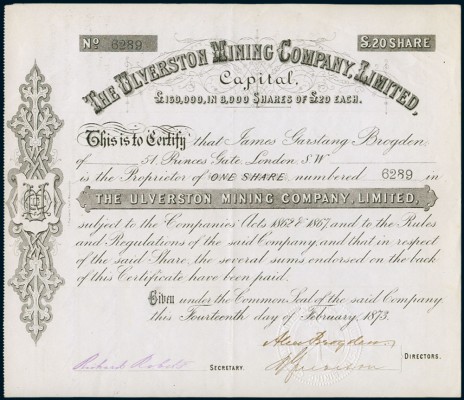 No 6289 £.20 SHARE
THE ULVERSTON MINING COMPANY, LIMITED,
Capital,
£160,000, IN 8,000 SHARES OF £20 EACH.
This is to Certify that James Garstang Brogden
of 51 Princes Gate, London S W
is the Proprietor of ONE SHARE numbered 6289 in
THE ULVERSTON MINING COMPANY, LIMITED,
subject to the Companies' Acts 1862 & 1867, and to the Rules
and Regulations of the said Company, and that in respect
of the said Share, the several sums endorsed on the back
of this Certificate have been paid.
Given under the Common Seal of the said Company
this Fourteenth day of February, 1873.
Alex Brogden
Richard Roberts SECRETARY. DIRECTORS.